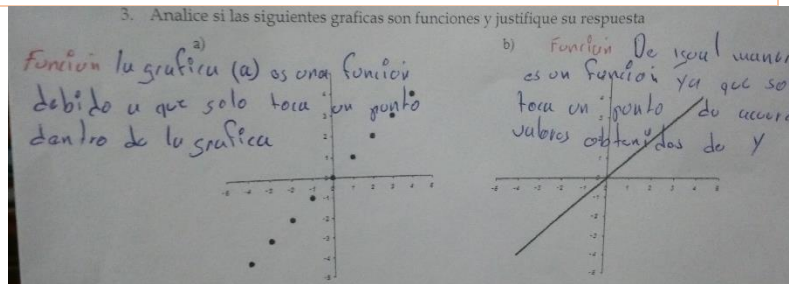 3. Analice si las siguientes graficas son funciones y justifique su respuesta
a)
Función la grafica (a) es una función
debido a que solo toca un punto
dentro de la grafica
b)
Función De igual
es un función ya que so
toca un punto de
valores obtenidos de y